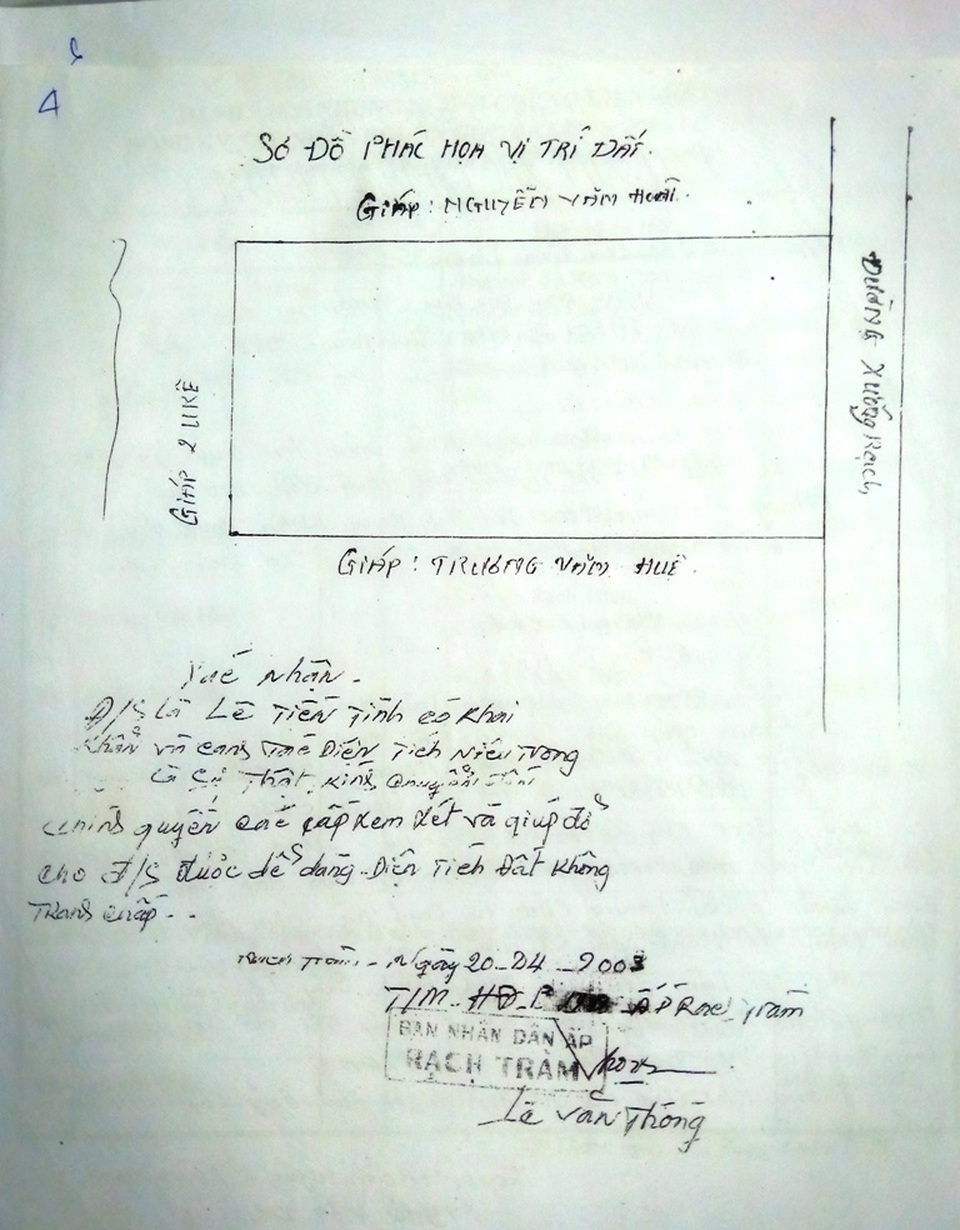 4
SƠ ĐỒ PHÁC HỌA VỊ TRÍ ĐẤT.
GIÁP: NGUYỄN VĂN
ĐƯỜNG XUỐNG RẠCH
GIÁP 2 LIKÊ
GIÁP: TRƯƠNG VĂN HUỆ.
Xác nhận.
Đ/S Là Lê Tiến Tình có Khai
Khẩn và canh Tác Diện Tích nêu Trong
Là Sự Thật, Kính
chính quyền các cấp xem xét và giúp đỡ
cho đ/S được dễ dàng. Diện Tích Đất Không
Tranh chấp..
Rạch Tràm. Ngày 20-04-2003
T/M ẤP Rạch Tràm
BAN NHÂN DÂN ẤP
RẠCH TRÀM
Lê Văn Thống